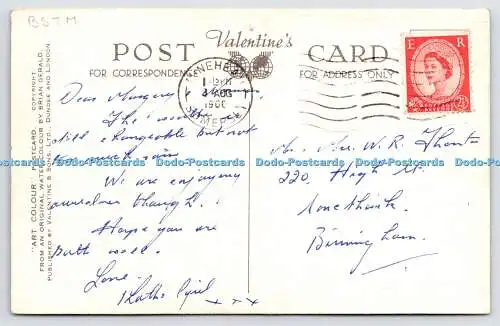 BSTM
POST Valentine's CARD
FOR CORRESPONDENCE FOR ADDRESS ONLY
MINEHEAD
1 - PM
AUG
1960
SOMERSET
E R
2½D
"ART COLOUR" POSTCARD. COPYRIGHT
FROM AN ORIGINAL WATER-COLOUR BY BRIAN GERALD.
PUBLISHED BY VALENTINE & SONS, LTD., DUNDEE AND LONDON
Dear Margery
The weather is
still changeable but not
too much rain
We are enjoying
ourselves though.
Hope you are
both well.
Love
Kath Cyril x x x
Mr. Mrs. W. R.
220, High St.
Birmingham.
Dodo-Postcards Dodo-Postcards Dodo-Postcards Dodo-Postcards Dodo-Postcards Dodo-Postcards